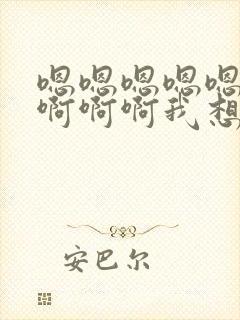 嗯嗯嗯嗯嗯
啊啊啊我想
安巴尔